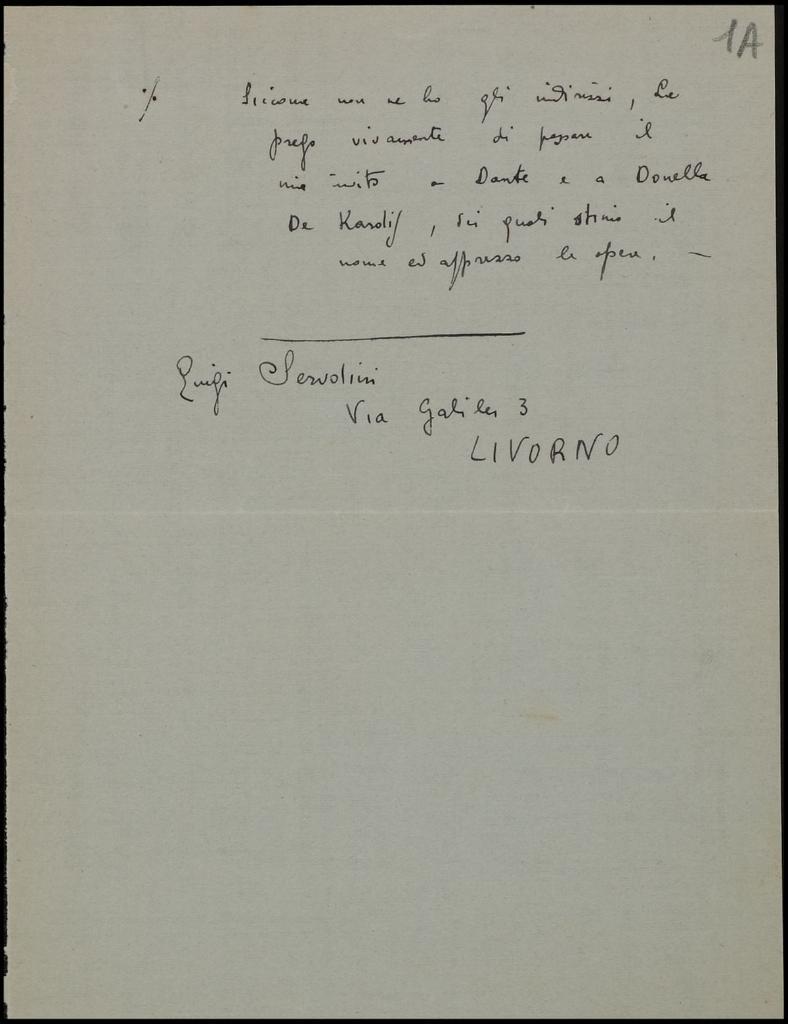 1A
·/· Siccome non ne ho gli indirizzi, La
prego vivamente di passare il
mio invito a Dante e a Donella
De Karolis, dei quali stimo il
nome ed apprezzo le opere. —
Luigi Servolini
Via Galilei 3
LIVORNO